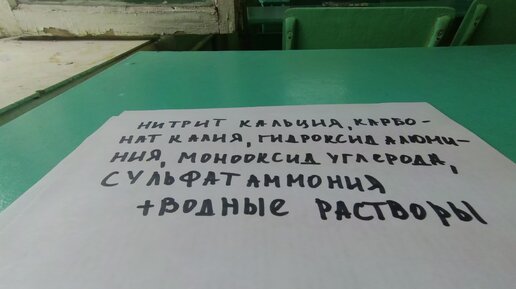 НИТРИТ КАЛЬЦИЯ, КАРБО-
НАТ КАЛИЯ, ГИДРОКСИД АЛЮМИ-
НИЯ, МОНООКСИД УГЛЕРОДА,
СУЛЬФАТ АММОНИЯ
+ВОДНЫЕ РАСТВОРЫ